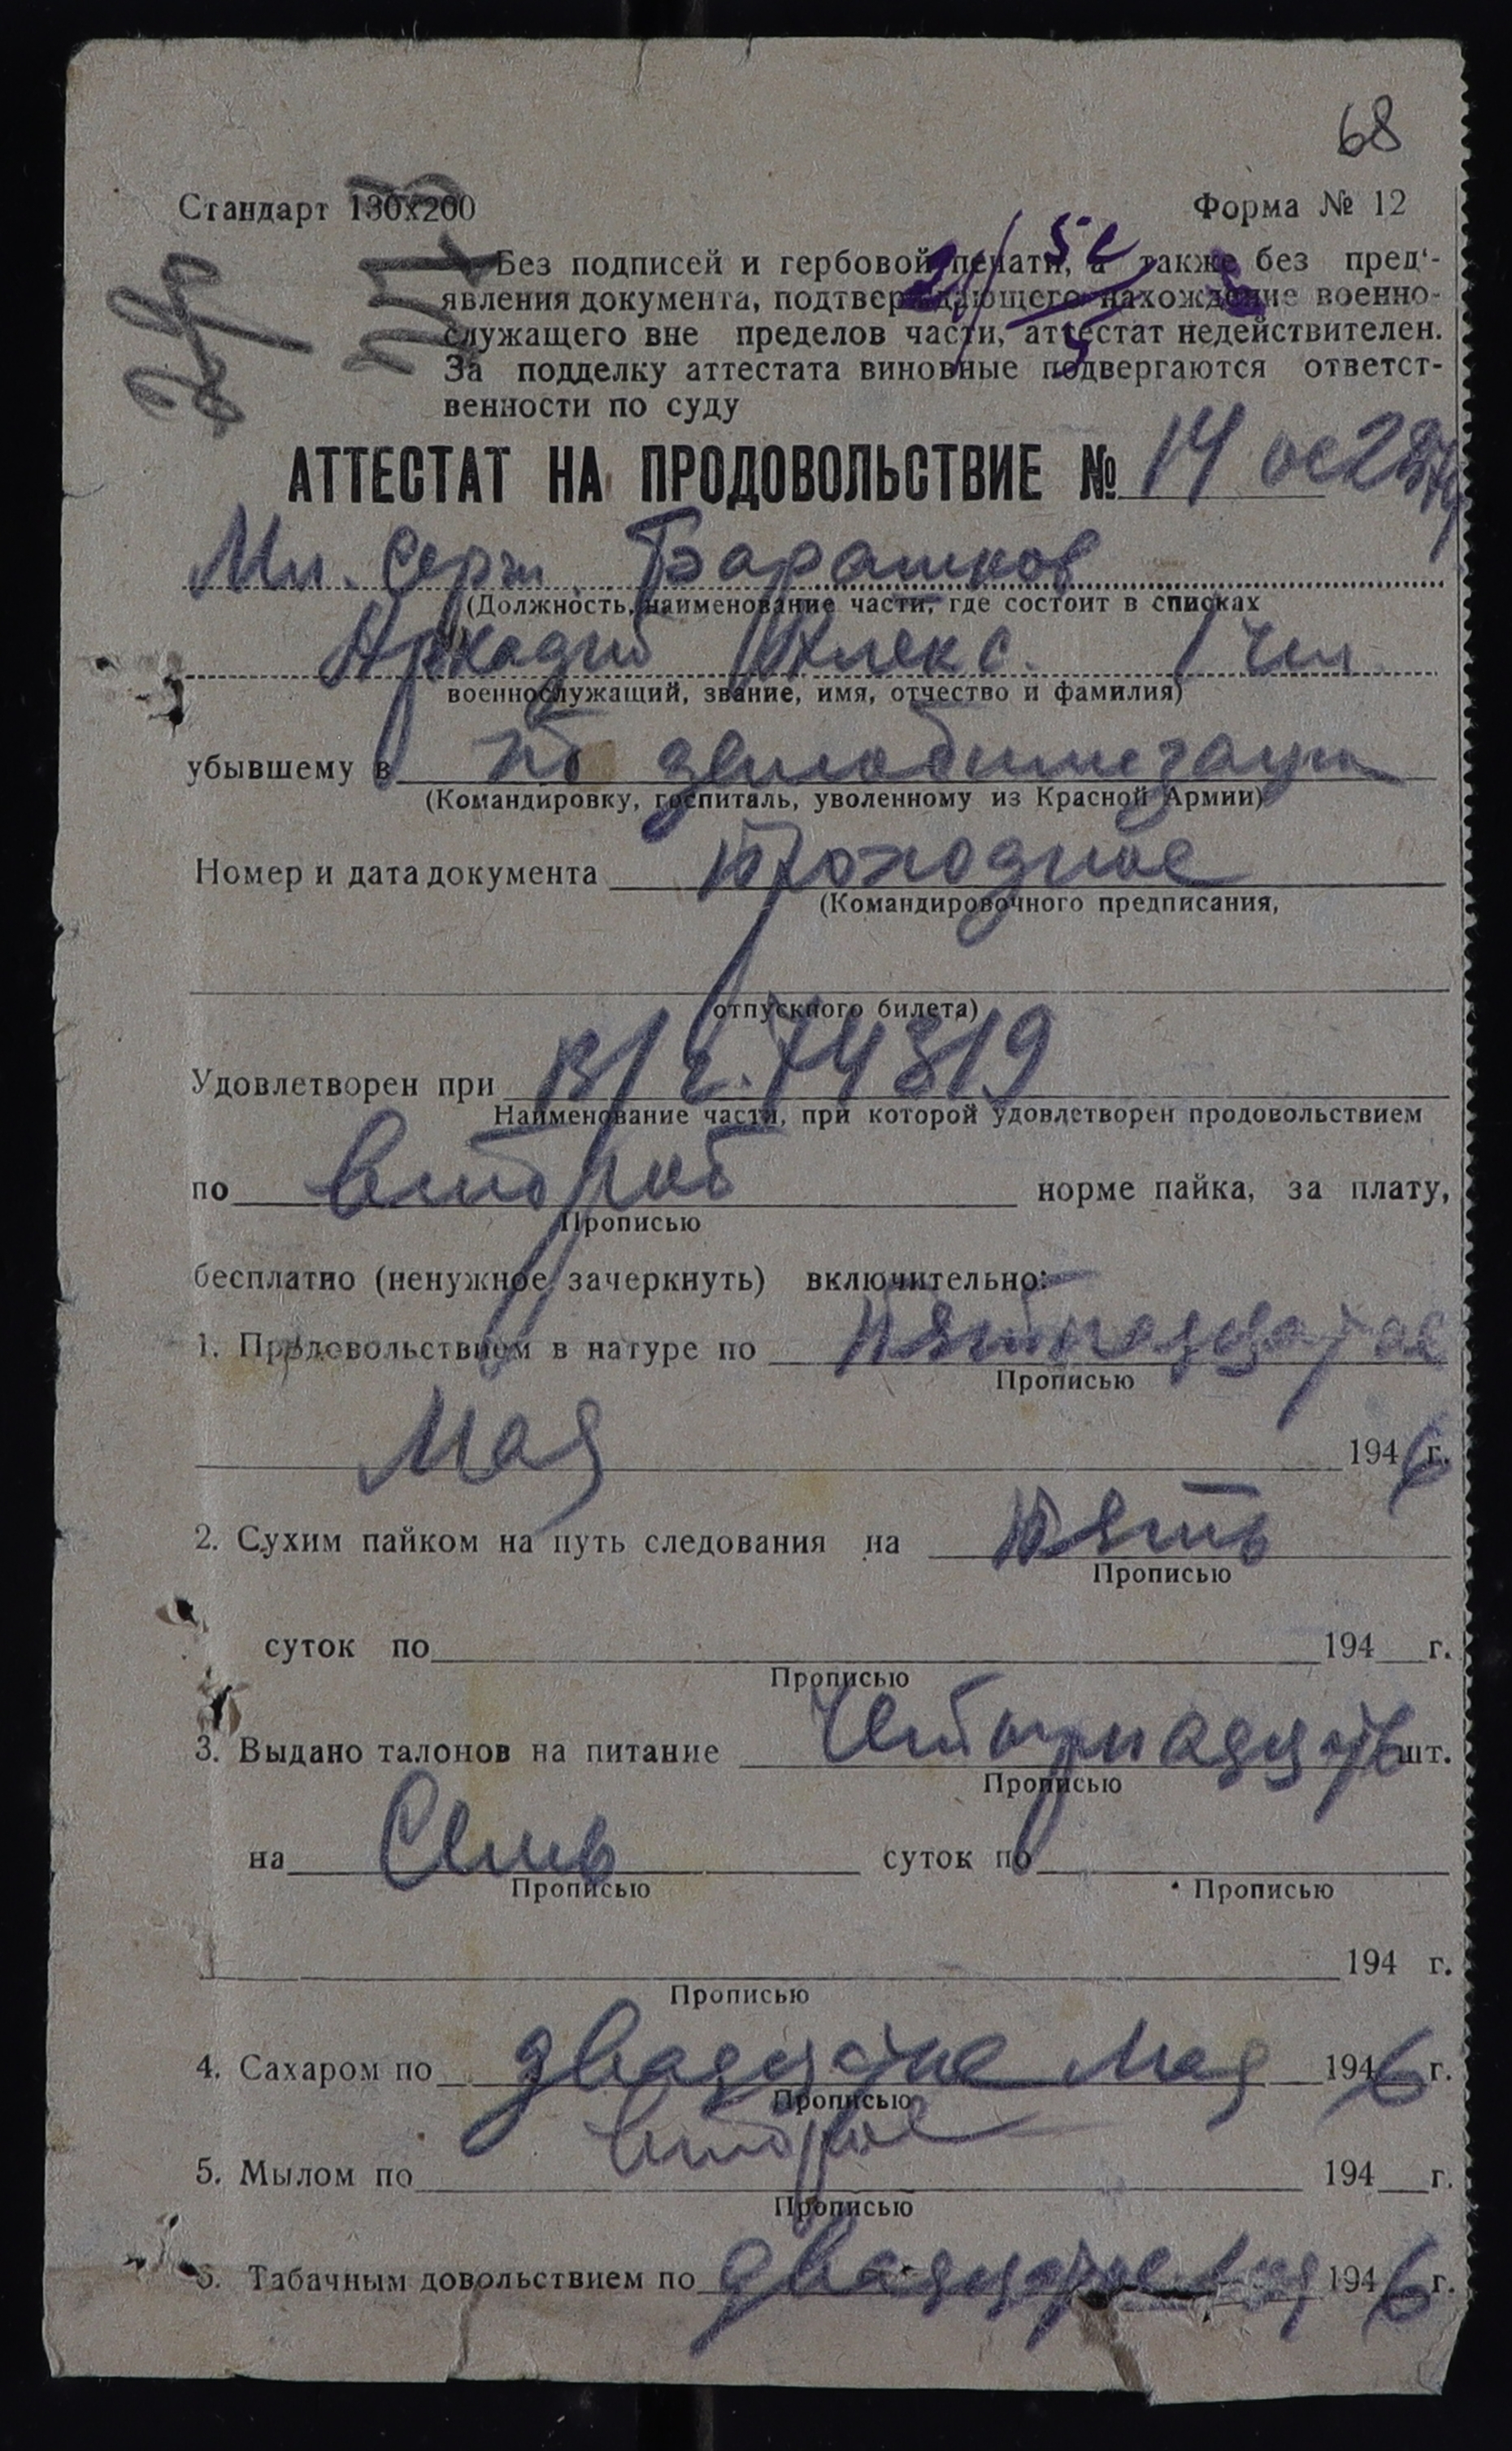 68
Стандарт 130х200
Форма № 12
Без подписей и гербовой печати, а также без пред'-
явления документа, подтверждающего нахождение военно-
служащего вне пределов части, аттестат недействителен.
За подделку аттестата виновные подвергаются ответст-
венности по суду
АТТЕСТАТ НА ПРОДОВОЛЬСТВИЕ № 14
Мл. Серж. Барашков
(Должность, наименование части, где состоит в списках
Аркадий Алекс. 1 чел.
военнослужащий, звание, имя, отчество и фамилия)
убывшему в по демобилизации
(Командировку, госпиталь, уволенному из Красной Армии)
Номер и дата документа проходное
(Командировочного предписания,
отпускного билета)
Удовлетворен при в/ч. 74319
Наименование части, при которой удовлетворен продовольствием
по второй норме пайка, за плату,
Прописью
бесплатно (ненужное зачеркнуть) включительно:
1. Продовольствием в натуре по пятнадцатое
Прописью
Мая 1946 г.
2. Сухим пайком на путь следования на пять
Прописью
суток по 194 г.
Прописью
3. Выдано талонов на питание четырнадцать шт.
Прописью
на Семь суток по
Прописью Прописью
194 г.
Прописью
4. Сахаром по двадцатое Мая 1946 г.
Прописью
второе
5. Мылом по 194 г.
Прописью
6. Табачным довольствием по двадцатое мая 1946 г.